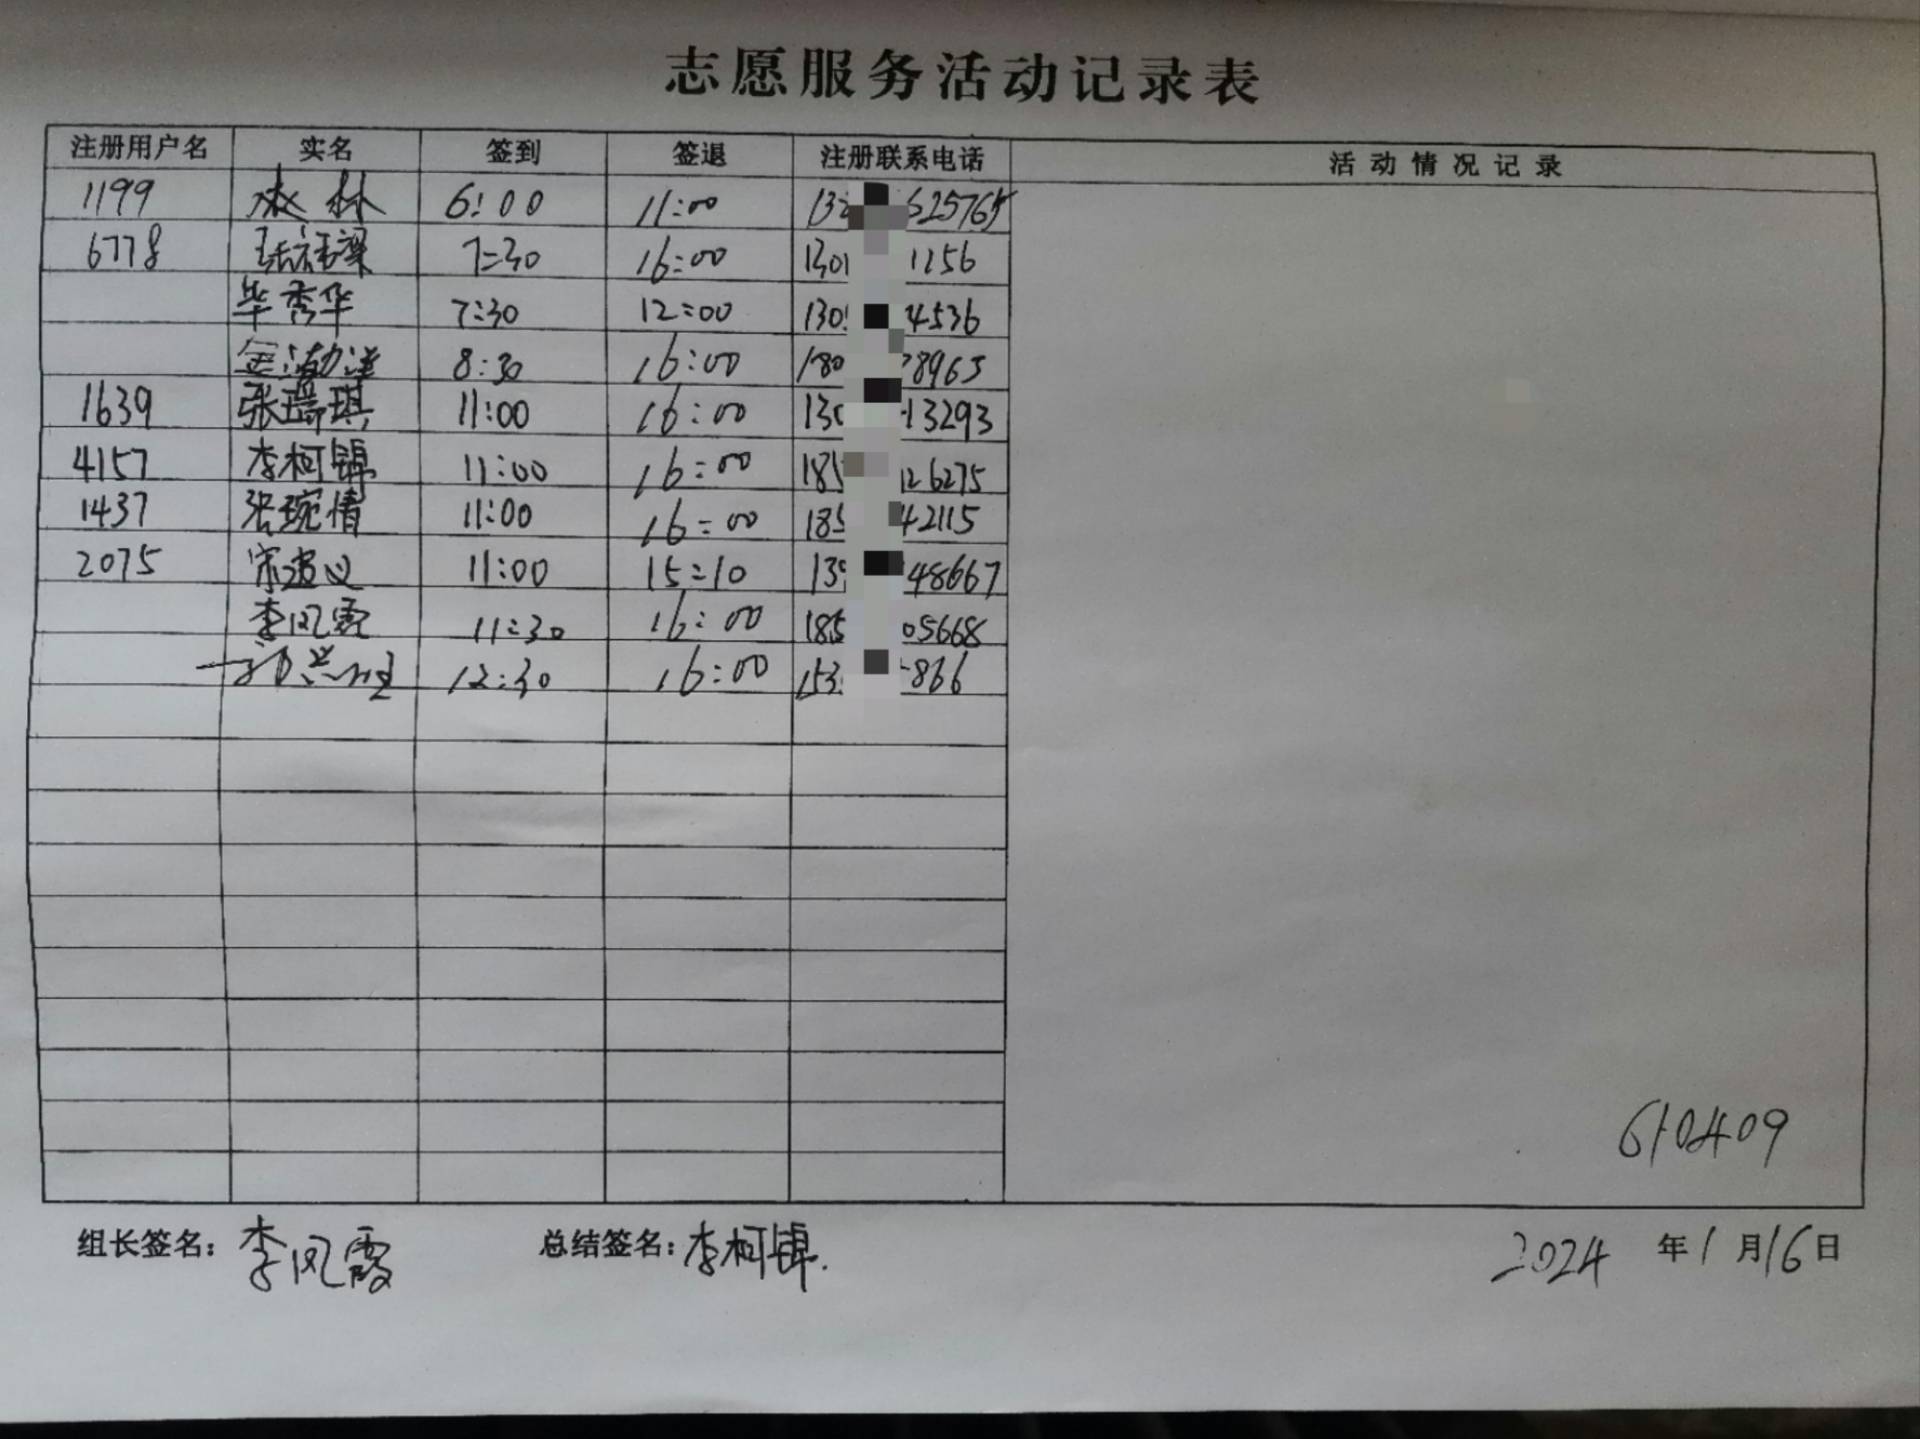 志愿服务活动记录表
注册用户名 实名 签到 签退 注册联系电话 活动情况记录
1199 林 6:00 11:00 132 625765
6778 7:30 16:00 1301 1156
毕秀华 7:30 12:00 130 4536
金渤洋 8:30 16:00 180 38965
1639 张瑞琪 11:00 16:00 130 13293
4157 李柯锦 11:00 16:00 185 126275
1437 张琬情 11:00 16:00 185 42115
2075 宋 义 11:00 15:10 139 48667
李风霞 11:30 16:00 185 05668
12:30 16:00 153 866
610409
组长签名：李风霞 总结签名：李柯锦. 2024年1月16日